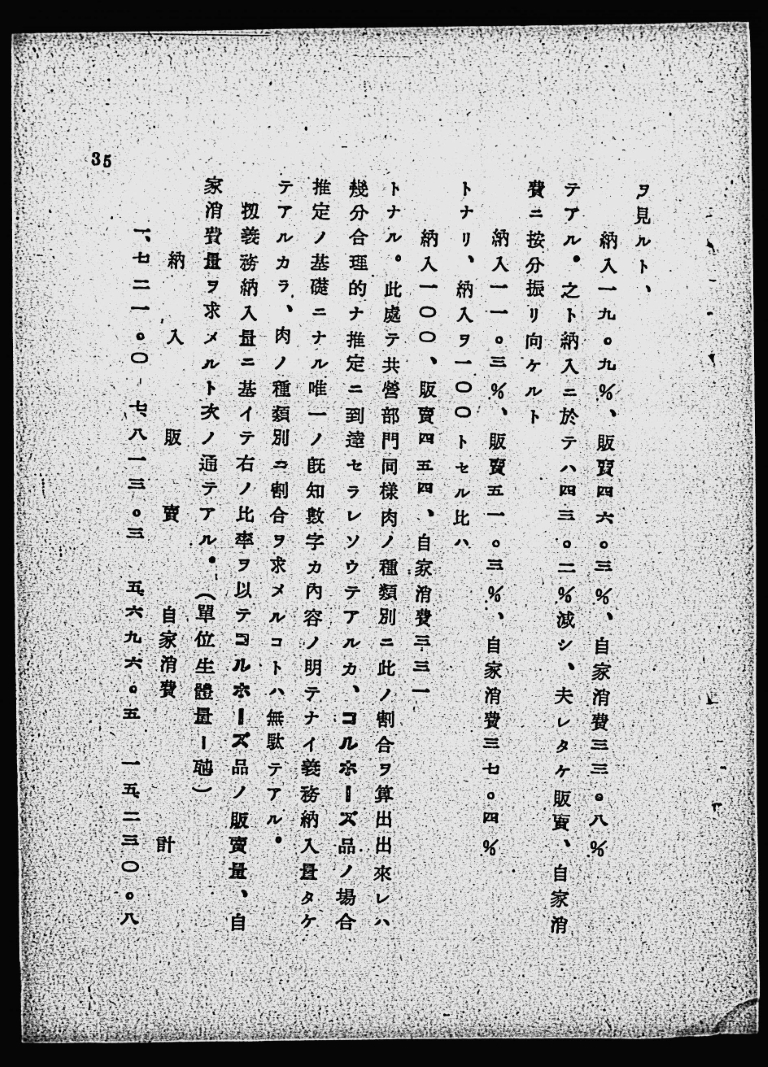 ヲ見ルト、
納入一九。九％、販賣四六。三％、自家消費三三。八％
テアル。之ト納入ニ於テハ四三。二％減シ、夫レタケ販賣、自家消
費ニ按分振リ向ケルト
納入一一。三％、販賣五一。三％、自家消費三七。四％
トナリ、納入ヲ一〇〇トセル比ハ
納入一〇〇、販賣四五四、自家消費三三一
トナル。此處テ共營部門同樣肉ノ種類別ニ此ノ割合ヲ算出出來レハ
幾分合理的ナ推定ニ到達セラレソウテアルカ、コルホーズ品ノ場合
推定ノ基礎ニナル唯一ノ既知數字カ內容ノ明テナイ義務納入量タケ
テアルカラ、肉ノ種類別ニ割合ヲ求メルコトハ無駄テアル。
扨義務納入量ニ基イテ右ノ比率ヲ以テコルホーズ品ノ販賣量、自
家消費量ヲ求メルト次ノ通テアル。（單位生體量ー瓲）
納入　販賣　自家消費　計
一、七二一。〇　七、八一三。三　五、六九六。五　一五、二三〇。八
35